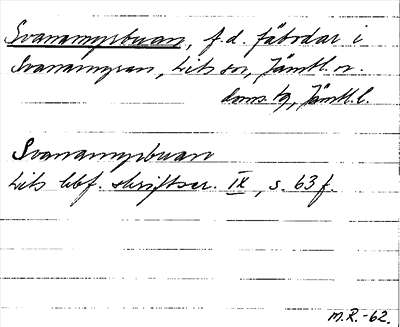 Svanamyrbuan, f.d. fäbodar i
Svanamyran, Lits sn, Jämtl. n.
doms.tg, Jämtl. l.
Svanamyrbuan
Lits hbf. skriftser. IX, s. 63 f.
M.R.-62.